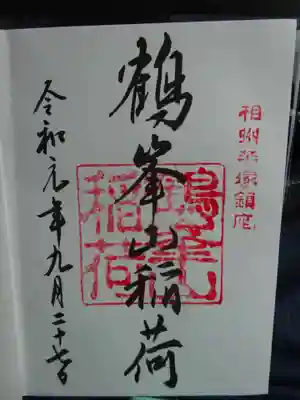 相州平塚鎮座
鶴峯山稲荷
鶴峯山稲荷
令和元年九月二十七日